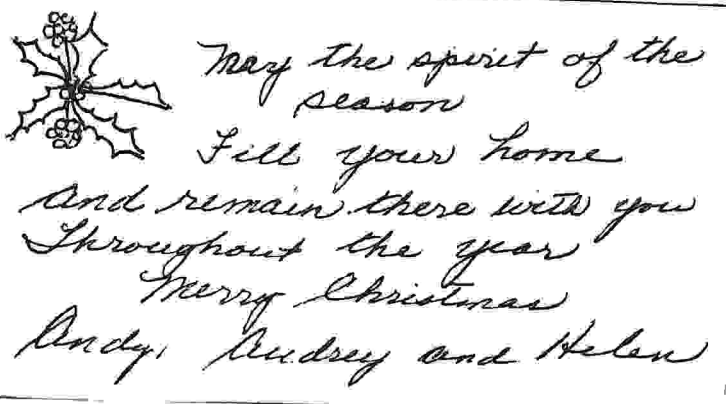 May the spirit of the
season
Fill your home
And remain there with you
Throughout the year
Merry Christmas
Andy, Audrey and Helen